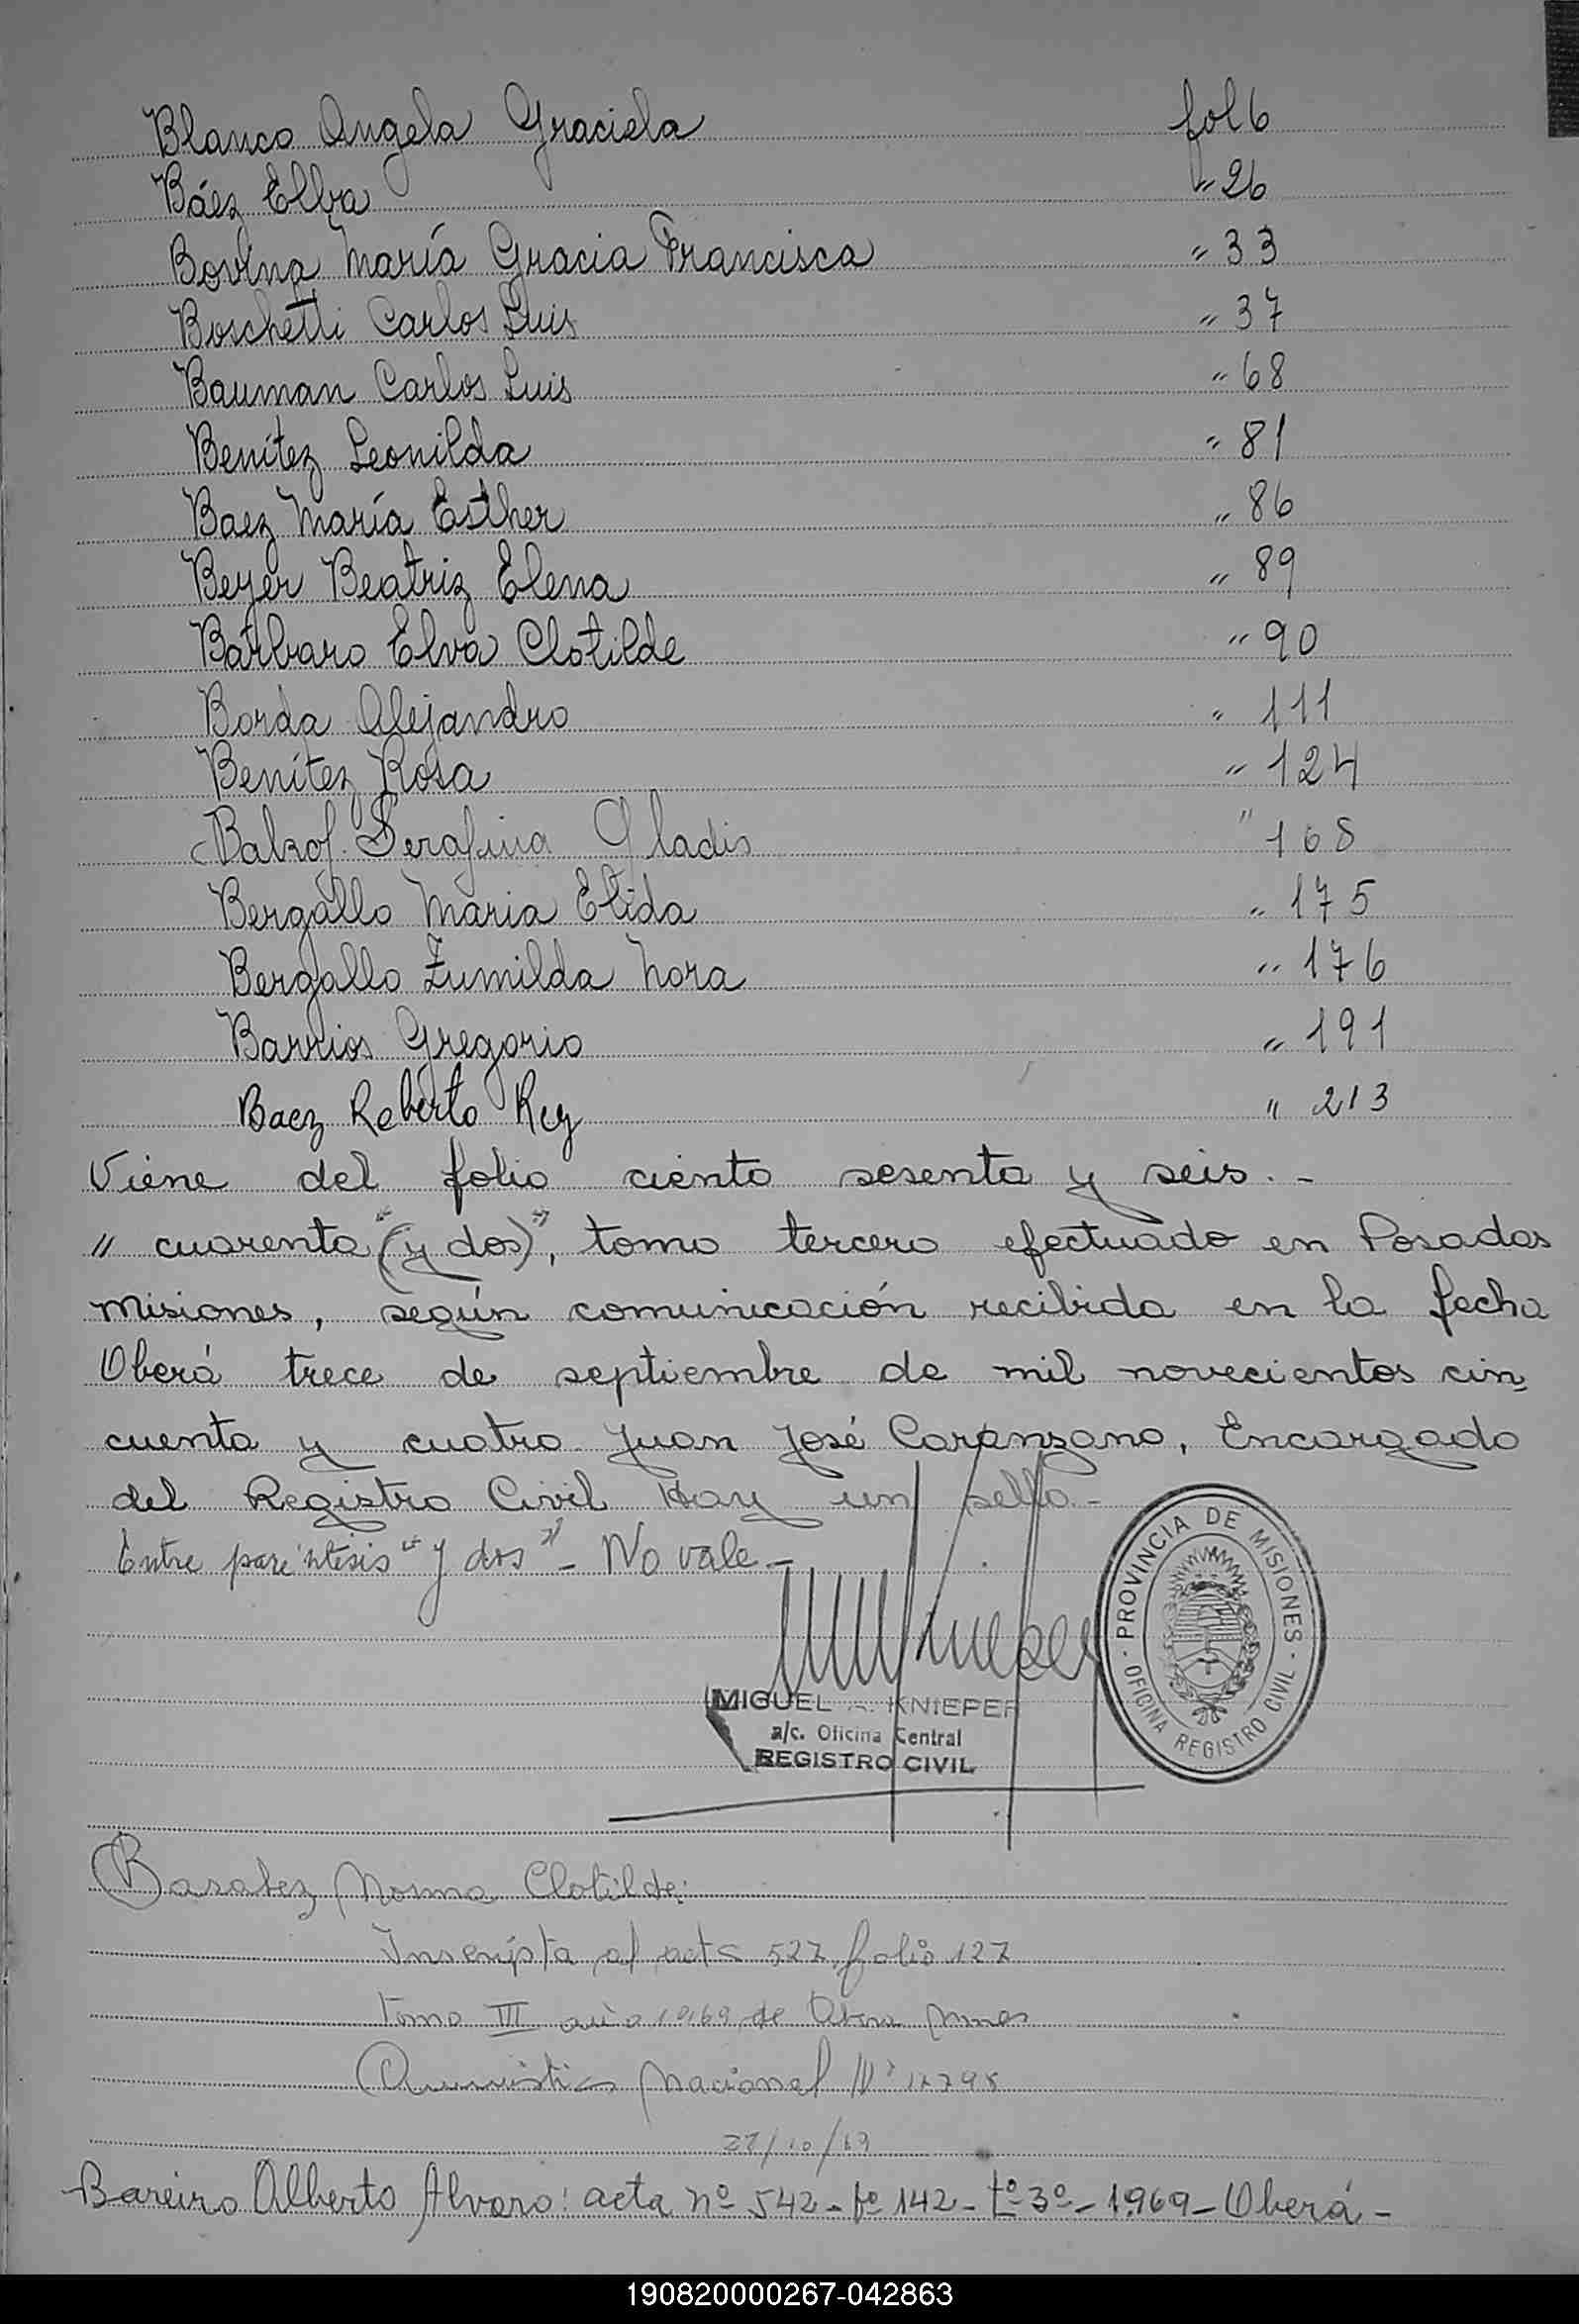 Blanco Angela Graciela fol 6
Báez Elba " 26
Bovina María Gracia Francisca " 33
Boschetti Carlos Luis " 37
Bauman Carlos Luis " 68
Benítez Leonilda " 81
Baez María Esther " 86
Beyer Beatriz Elena " 89
Barbaro Elva Clotilde " 90
Borda Alejandro " 111
Benítez Rosa " 124
Balzof Serafina Gladis " 168
Bergallo Maria Elida " 175
Bergallo Zumilda Nora " 176
Barrios Gregorio " 191
Baez Roberto Rey " 213
Viene del folio ciento sesenta y seis.-
" cuarenta "(y dos)", tomo tercero efectuado en Posadas
Misiones, según comunicación recibida en la fecha
Oberá trece de septiembre de mil novecientos cin-
cuenta y cuatro. Juan José Caranzano, Encargado
del Registro Civil Hay un sello.-
Entre paréntesis "y dos" - No vale -
PROVINCIA DE MISIONES
OFICINA REGISTRO CIVIL
MIGUEL A. KNIEPER
a/c. Oficina Central
REGISTRO CIVIL
Basabez Norma Clotilde:
Inscripta al acta 527 folio 127
tomo III año 1969 de Obera Mnes
Nacional Nº
/10/69
Bareiro Alberto Alvaro: acta nº 542 - fº 142 - tº 3º - 1969 - Oberá -
190820000267-042863